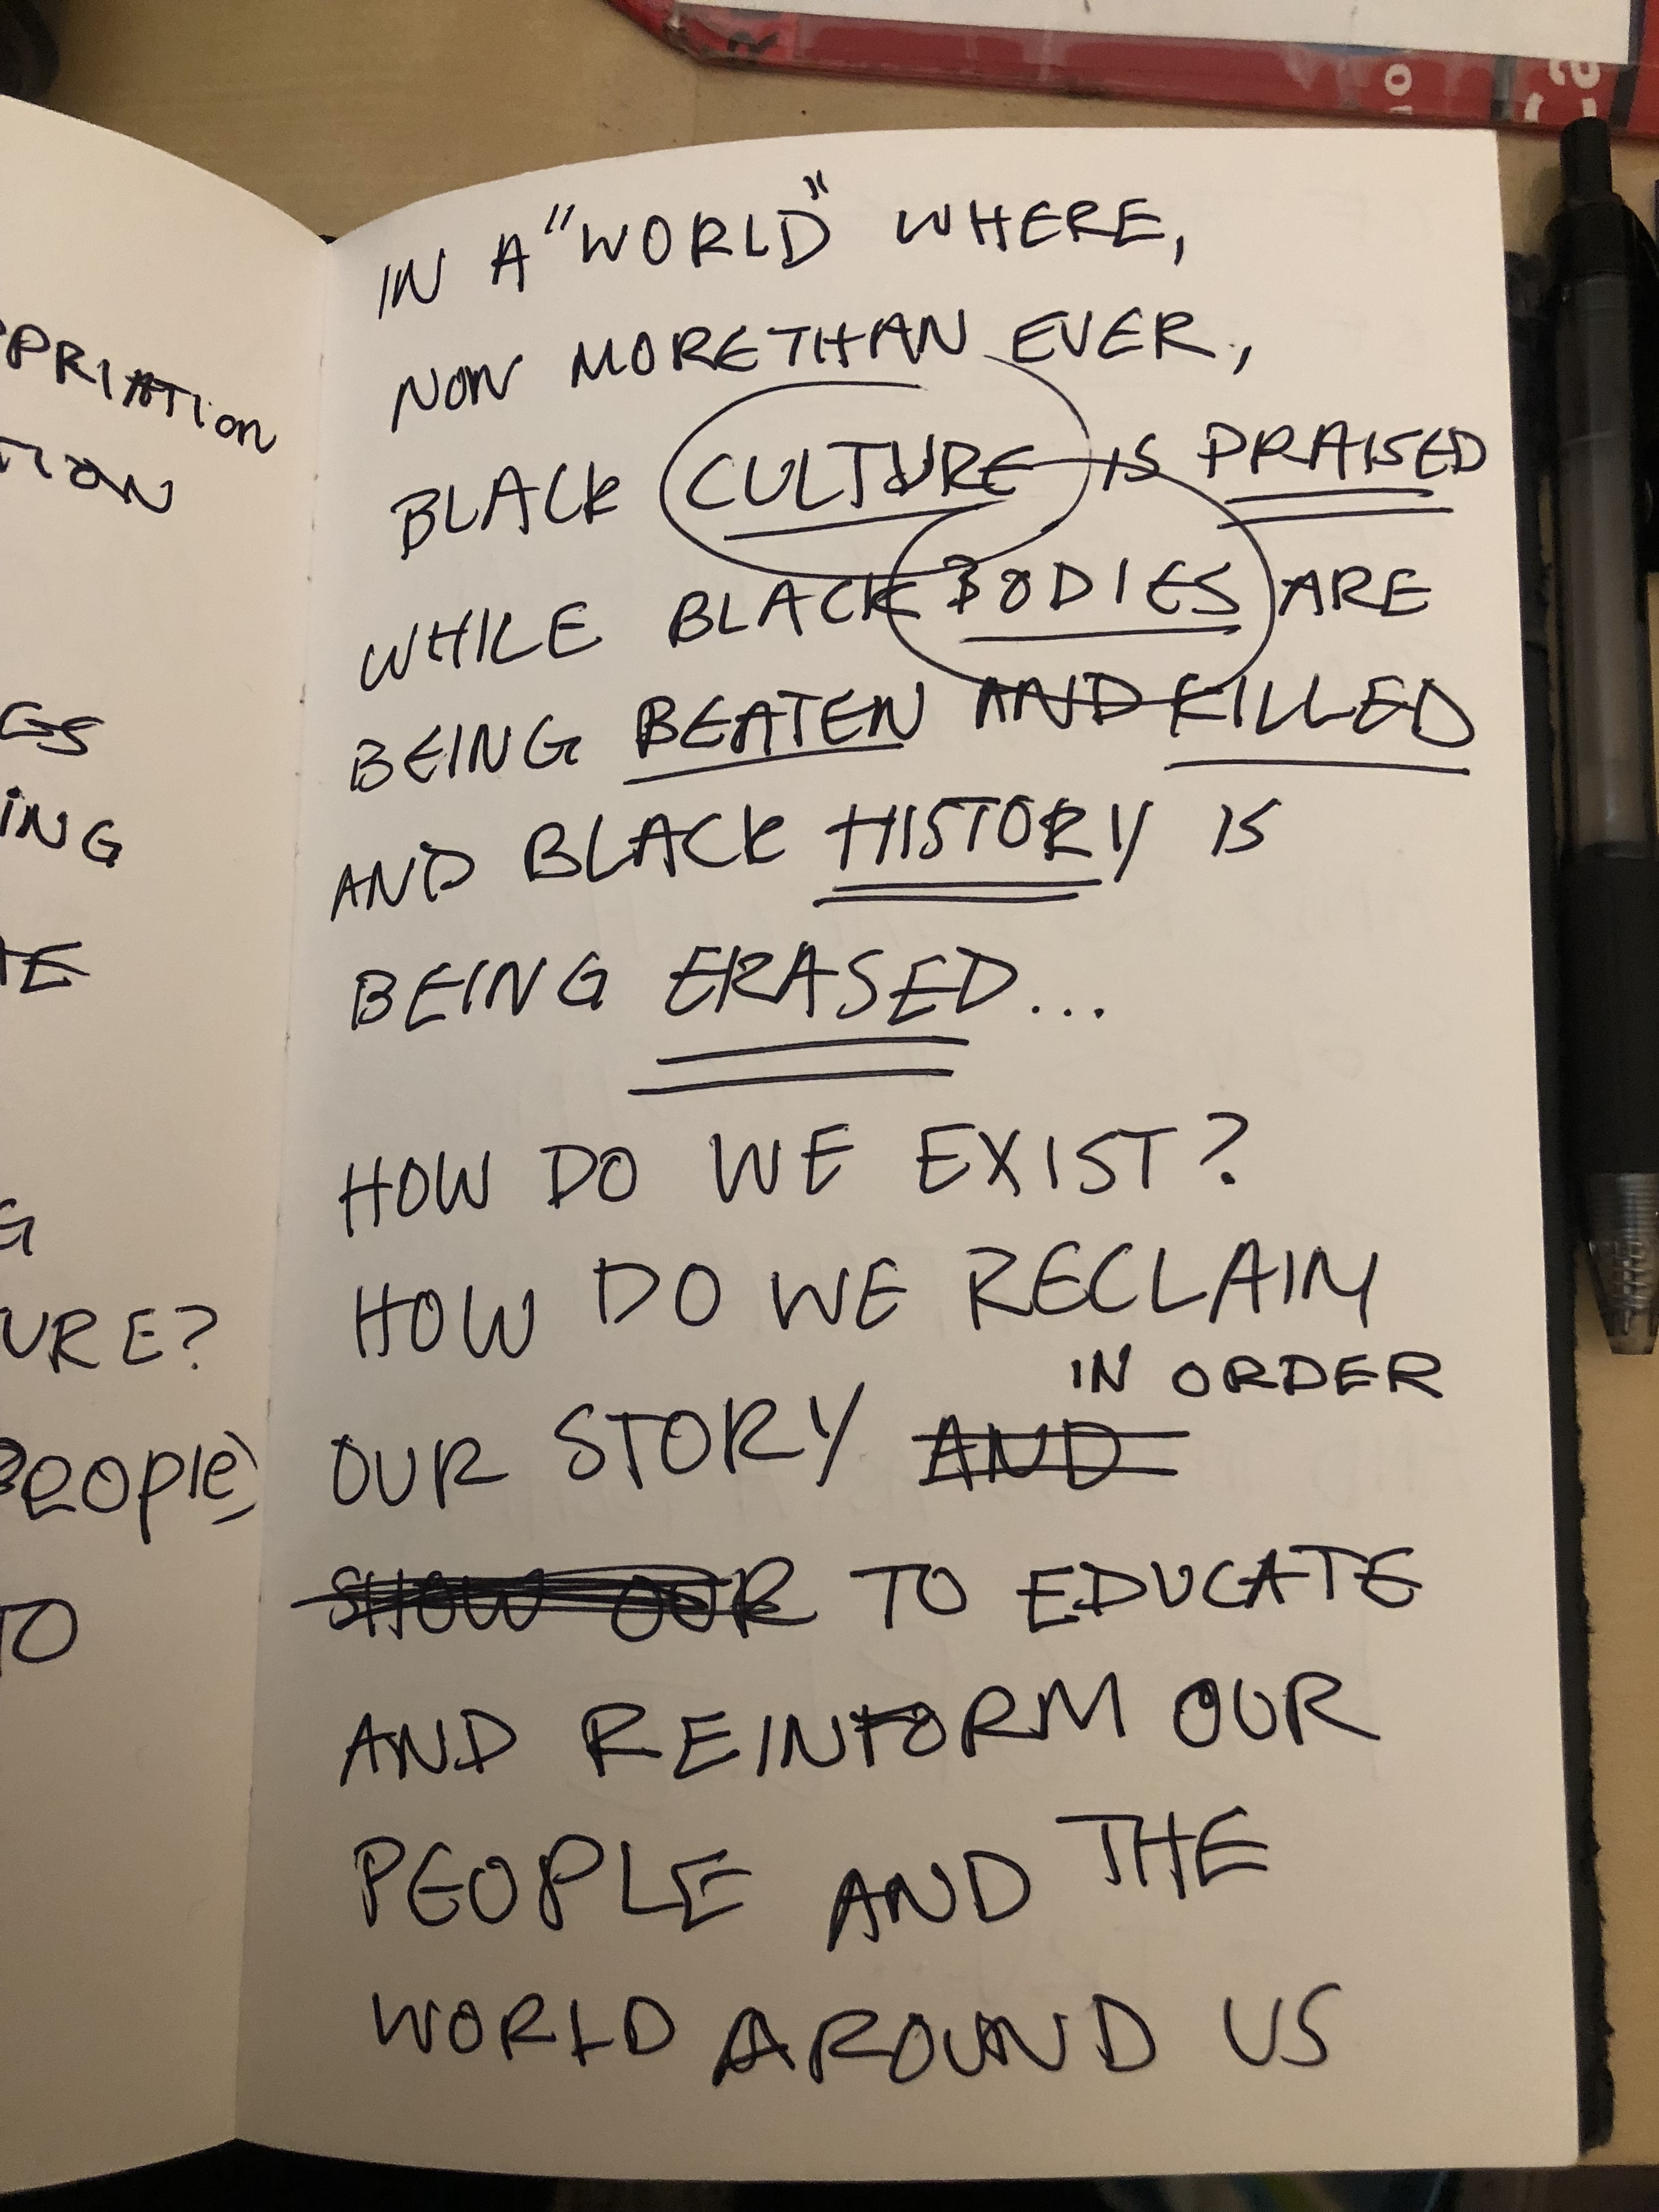 IN A "WORLD" WHERE,
NOW MORE THAN EVER,
BLACK CULTURE IS PRAISED
WHILE BLACK BODIES ARE
BEING BEATEN AND KILLED
AND BLACK HISTORY IS
BEING ERASED...
HOW DO WE EXIST?
HOW DO WE RECLAIM
IN ORDER
OUR STORY AND
SHOW OUR TO EDUCATE
AND REINFORM OUR
PEOPLE AND THE
WORLD AROUND US
TION
ING
URE?
PEOPLE)
TO